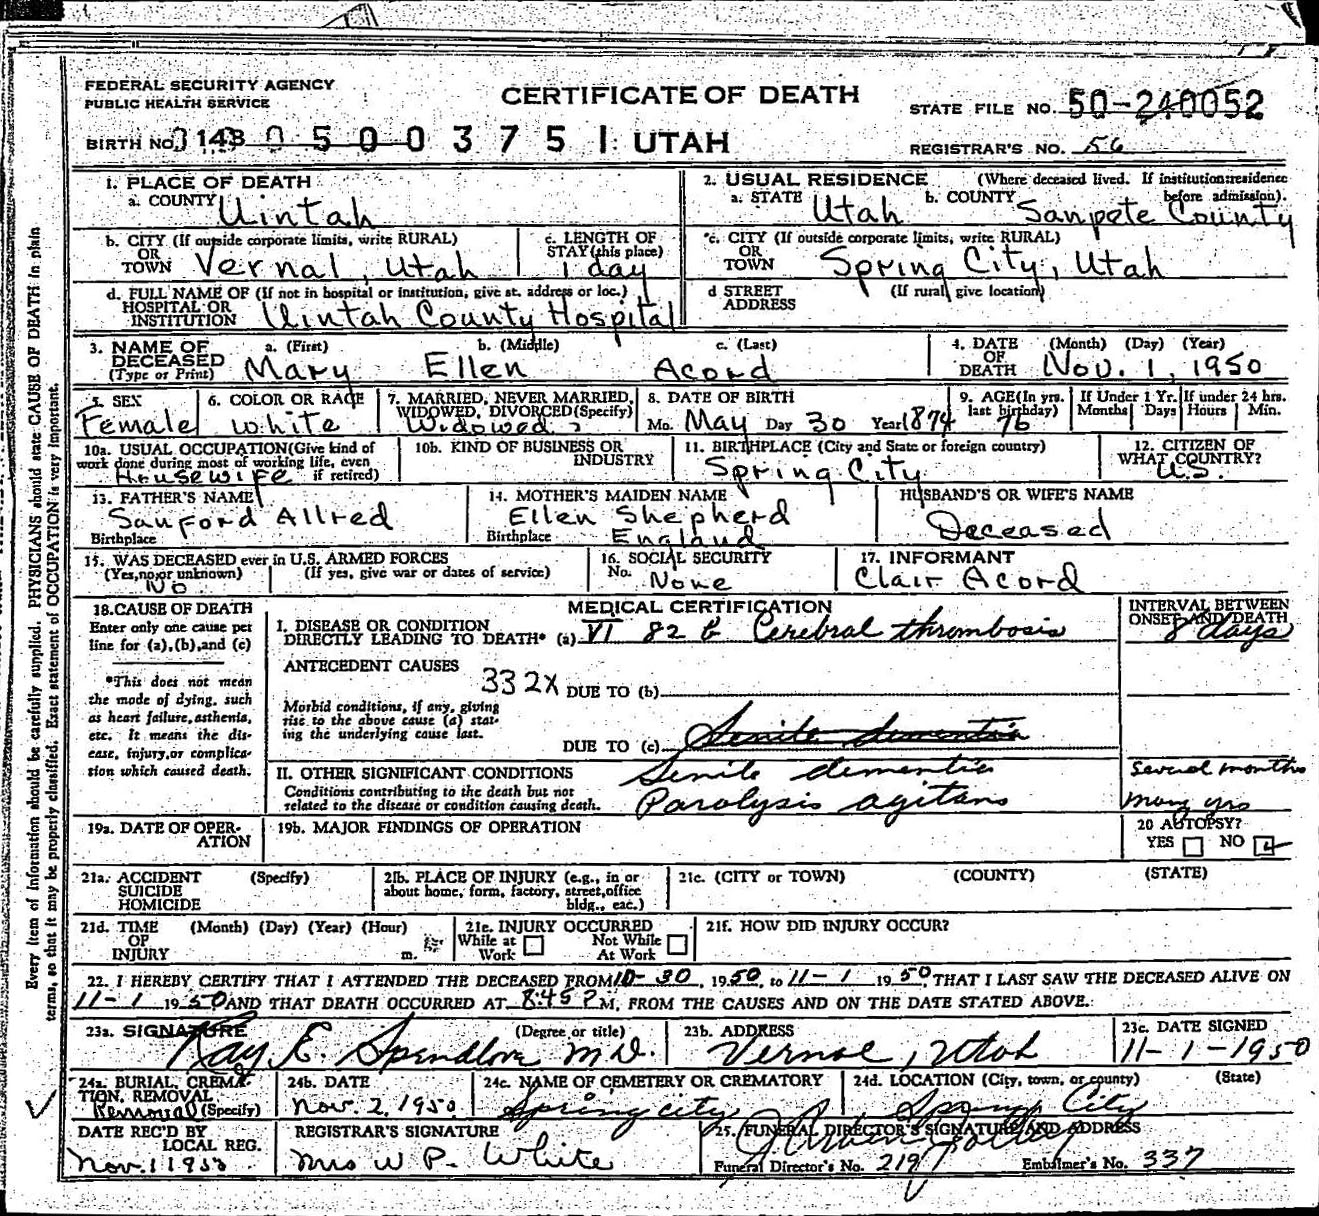 FEDERAL SECURITY AGENCY
PUBLIC HEALTH SERVICE
CERTIFICATE OF DEATH
STATE FILE NO. 50-240052
BIRTH NO. 143 0 5 0 0 3 7 5 1 UTAH
REGISTRAR'S NO. 56
1. PLACE OF DEATH
a. COUNTY Uintah
2. USUAL RESIDENCE (Where deceased lived. If institution: residence before admission).
a. STATE Utah b. COUNTY Sanpete County
b. CITY (If outside corporate limits, write RURAL) OR TOWN Vernal, Utah
c. LENGTH OF STAY (this place) 1 day
c. CITY (If outside corporate limits, write RURAL) OR TOWN Spring City, Utah
d. FULL NAME OF (If not in hospital or institution, give st. address or loc.) HOSPITAL OR INSTITUTION Uintah County Hospital
d STREET ADDRESS (If rural, give location)
3. NAME OF DECEASED (Type or Print)
a. (First) Mary b. (Middle) Ellen c. (Last) Acord
4. DATE OF DEATH (Month) (Day) (Year) Nov. 1, 1950
5. SEX Female
6. COLOR OR RACE White
7. MARRIED, NEVER MARRIED, WIDOWED, DIVORCED (Specify) Widowed
8. DATE OF BIRTH Mo. May Day 30 Year 1874
9. AGE (In yrs. last birthday) 76
If Under 1 Yr. Months Days
If under 24 hrs. Hours Min.
10a. USUAL OCCUPATION (Give kind of work done during most of working life, even if retired) Housewife
10b. KIND OF BUSINESS OR INDUSTRY
11. BIRTHPLACE (City and State or foreign country) Spring City
12. CITIZEN OF WHAT COUNTRY? U.S.
13. FATHER'S NAME Sanford Allred
Birthplace
14. MOTHER'S MAIDEN NAME Ellen Shepherd
Birthplace England
HUSBAND'S OR WIFE'S NAME Deceased
15. WAS DECEASED ever in U.S. ARMED FORCES
(Yes, no, or unknown) (If yes, give war or dates of service) No
16. SOCIAL SECURITY No. None
17. INFORMANT Clair Acord
18. CAUSE OF DEATH
Enter only one cause per line for (a), (b), and (c)
*This does not mean the mode of dying, such as heart failure, asthenia, etc. It means the disease, injury, or complication which caused death.
MEDICAL CERTIFICATION
INTERVAL BETWEEN ONSET AND DEATH
I. DISEASE OR CONDITION DIRECTLY LEADING TO DEATH* (a) VI 82 b Cerebral thrombosis 8 days
ANTECEDENT CAUSES
332X DUE TO (b)
Morbid conditions, if any, giving rise to the above cause (a) stating the underlying cause last.
DUE TO (c) Senile dementia
II. OTHER SIGNIFICANT CONDITIONS
Conditions contributing to the death but not related to the disease or condition causing death.
Senile dementia Several months
Paralysis agitans Many yrs
19a. DATE OF OPERATION
19b. MAJOR FINDINGS OF OPERATION
20 AUTOPSY? YES NO
21a. ACCIDENT SUICIDE HOMICIDE (Specify)
21b. PLACE OF INJURY (e.g., in or about home, form, factory, street, office bldg., eac.)
21c. (CITY or TOWN) (COUNTY) (STATE)
21d. TIME OF INJURY (Month) (Day) (Year) (Hour) m.
21e. INJURY OCCURRED While at Work Not While At Work
21f. HOW DID INJURY OCCUR?
22. I HEREBY CERTIFY THAT I ATTENDED THE DECEASED FROM 10-30, 1950, to 11-1 1950, THAT I LAST SAW THE DECEASED ALIVE ON
11-1 1950 AND THAT DEATH OCCURRED AT 8:45 P M, FROM THE CAUSES AND ON THE DATE STATED ABOVE.
23a. SIGNATURE (Degree or title) Ray E. Spendlove M.D.
23b. ADDRESS Vernal, Utah
23c. DATE SIGNED 11-1-1950
24a. BURIAL, CREMATION, REMOVAL (Specify) Removal
24b. DATE Nov. 2, 1950
24c. NAME OF CEMETERY OR CREMATORY Spring City
24d. LOCATION (City, town, or county) (State) Spring City
DATE REC'D BY LOCAL REG. Nov. 1 1950
REGISTRAR'S SIGNATURE Mrs W P. White
25. FUNERAL DIRECTOR'S SIGNATURE AND ADDRESS
Funeral Director's No. 219 Embalmer's No. 337
Every item of information should be carefully supplied. PHYSICIANS should state CAUSE OF DEATH in plain
terms, so that it may be properly classified. Exact statement of OCCUPATION is very important.